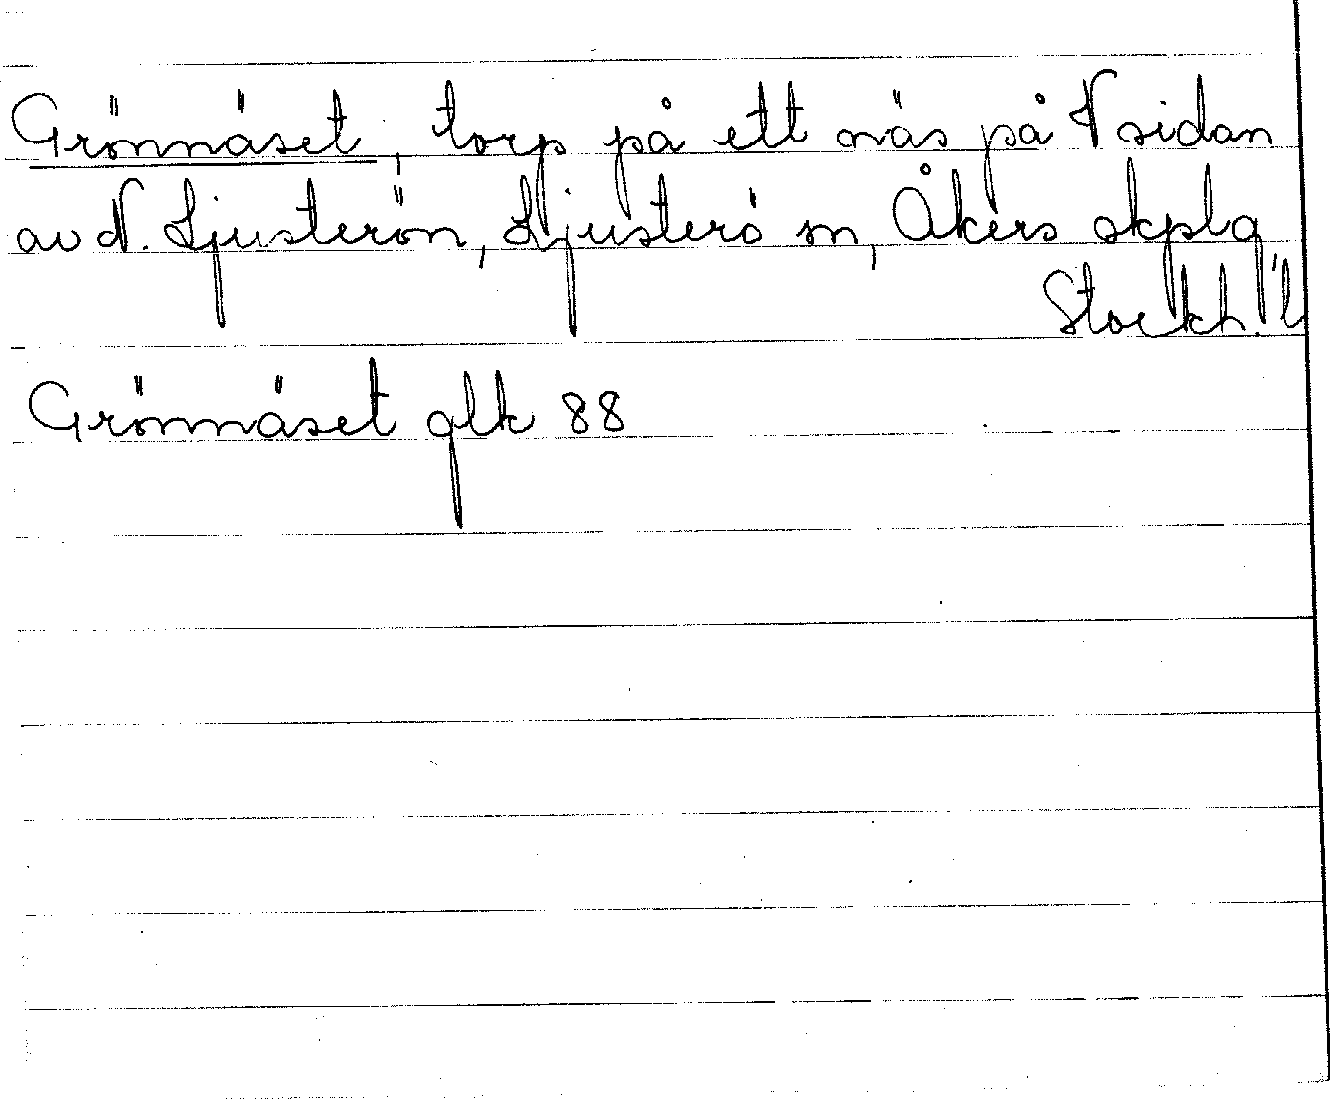 Grönnäset, torp på ett näs på N sidan
av N. Ljusterön, Ljusterö sn, Åkers skplg
Stockh. l
Grönnäset glk 88